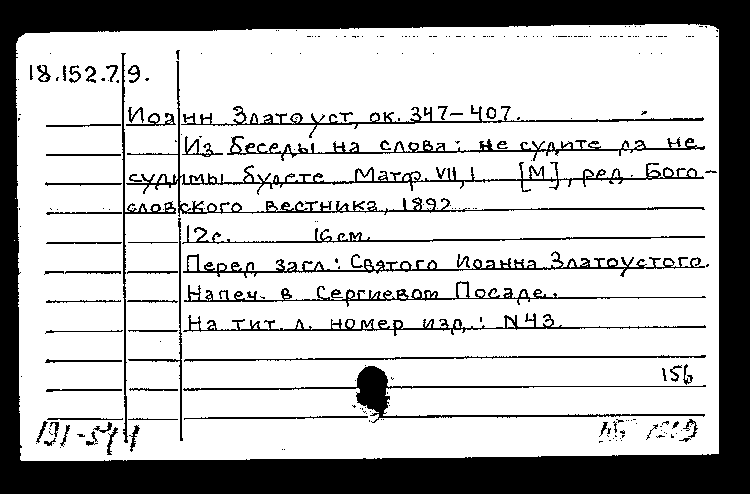 18.152.7.9.
Иоанн Златоуст, ок. 347-407.
Из беседы на слова: не судите да не
судимы будете Матф. VII, 1 [М.], ред. Бого-
словского вестника, 1892
12с. 16см.
Перед загл.: Святого Иоанна Златоустого.
Напеч. в Сергиевом Посаде.
На тит. л. номер изд.: N43.
156